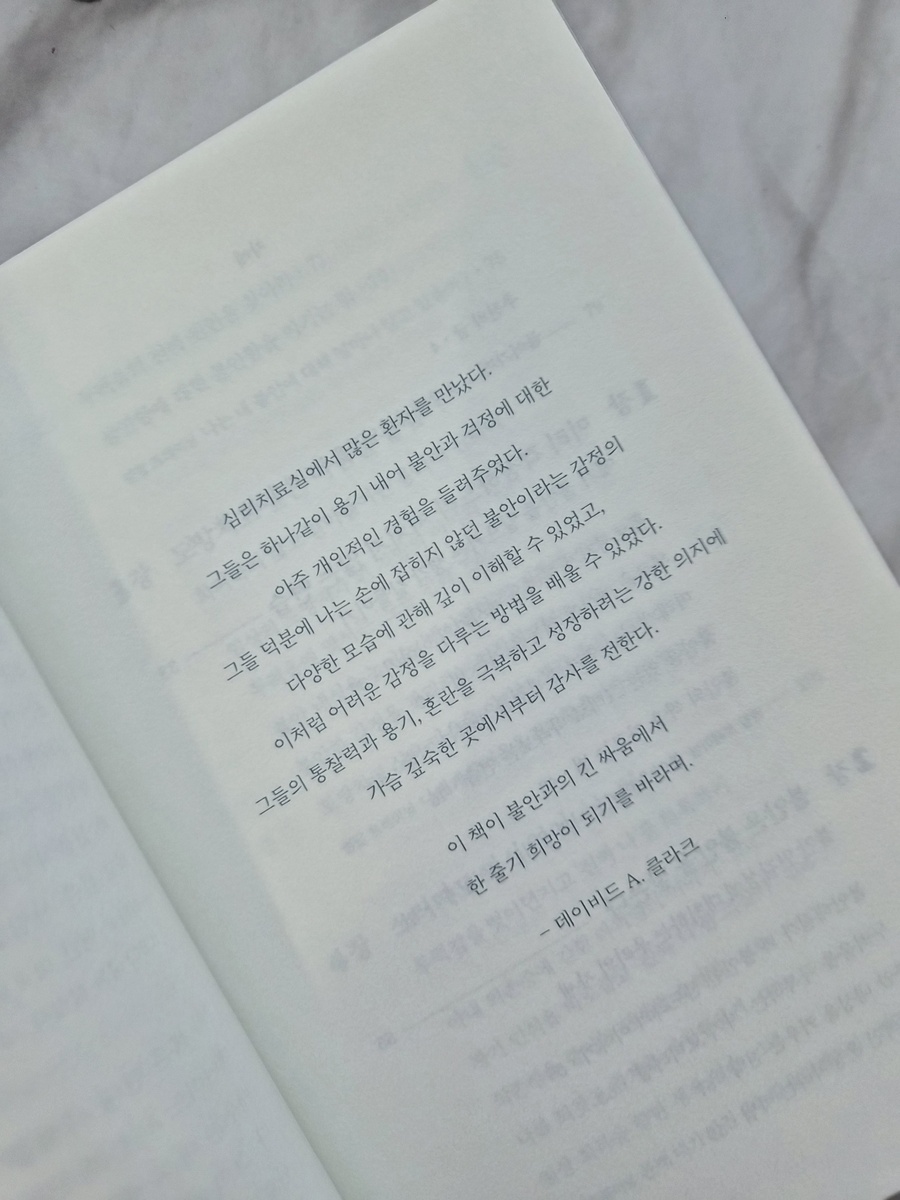 심리치료실에서 많은 환자를 만났다.
그들은 하나같이 용기 내어 불안과 걱정에 대한
아주 개인적인 경험을 들려주었다.
그들 덕분에 나는 손에 잡히지 않던 불안이라는 감정의
다양한 모습에 관해 깊이 이해할 수 있었고,
이처럼 어려운 감정을 다루는 방법을 배울 수 있었다.
그들의 통찰력과 용기, 혼란을 극복하고 성장하려는 강한 의지에
가슴 깊숙한 곳에서부터 감사를 전한다.
이 책이 불안과의 긴 싸움에서
한 줄기 희망이 되기를 바라며.
– 데이비드 A. 클라크